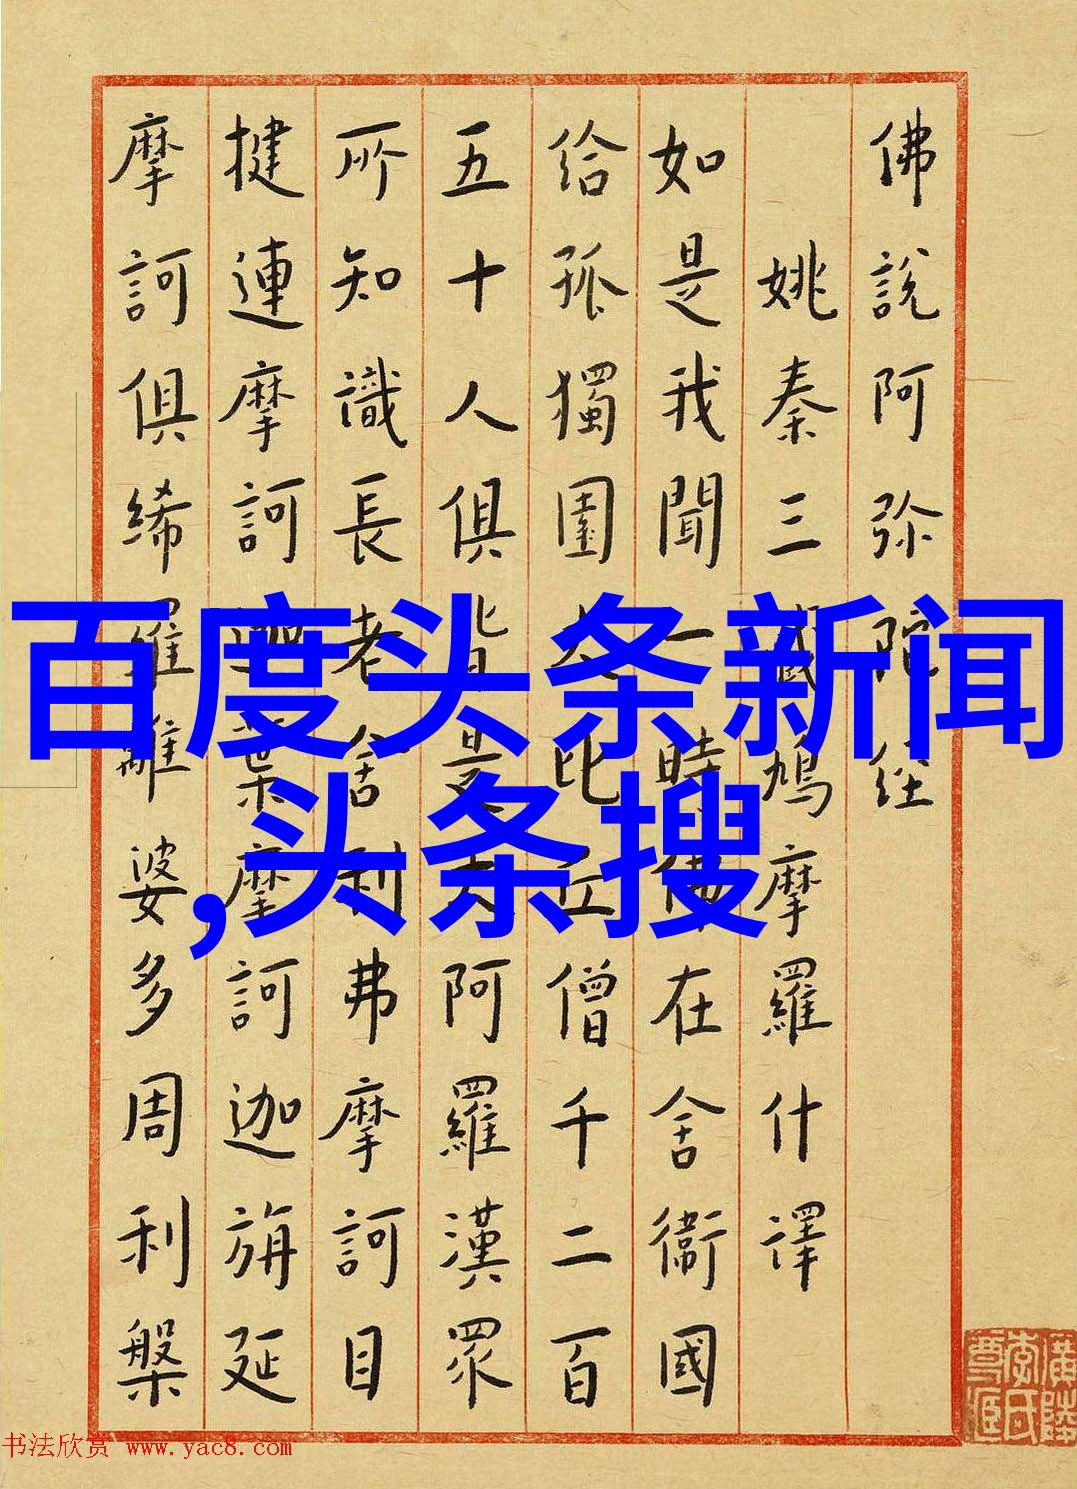 佛說阿弥陀經
姚秦三藏鳩摩羅什譯
如是我聞一時佛在舍衞國
給孤獨園大比丘僧千二百
五十人俱皆是大阿羅漢眾
所知識長老舍利弗摩訶目
揵連摩訶迦葉摩訶迦旃延
摩訶俱絺羅離婆多周利槃
百度头条新闻
,头条搜
书法欣赏 www.yac8.com